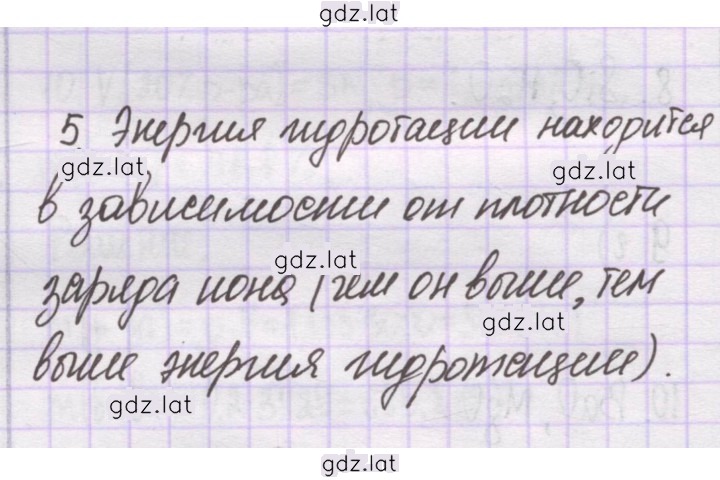 gdz.lat
5 Энергия гидротации находится
gdz.lat gdz.lat
в зависимости от плотности
gdz.lat
заряда иона (чем он выше, тем
gdz.lat
выше энергия гидротации).
gdz.lat
gdz.lat